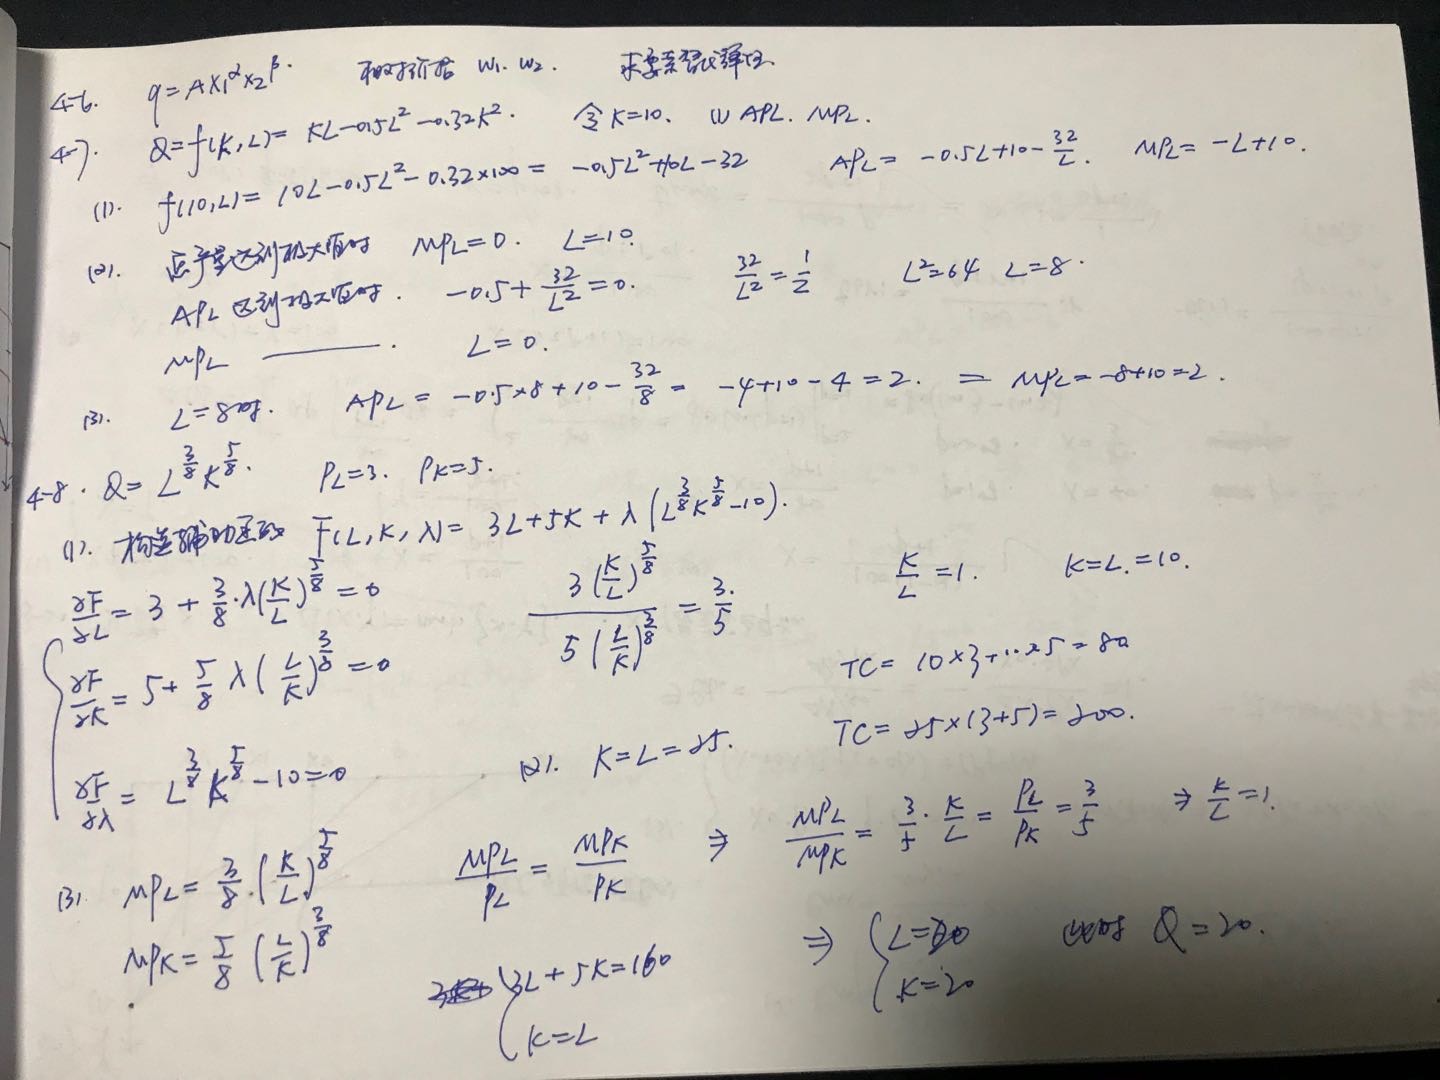 4-6. q=Ax₁^α x₂^β. 相对价格 w₁. w₂. 求要素替代弹性
4-7. Q=f(K,L)=KL-0.5L²-0.32K². 令K=10. (1) APL. MPL.
(1). f(10,L)=10L-0.5L²-0.32×100=-0.5L²+10L-32 APL=-0.5L+10-32/L. MPL=-L+10.
(2). 总产量达到极大值时 MPL=0. L=10.
APL达到极大值时. -0.5+32/L²=0. 32/L²=1/2 L²=64 L=8.
MPL ———. L=0.
(3). L=8时. APL=-0.5×8+10-32/8=-4+10-4=2. = MPL=-8+10=2.
4-8. Q=L^(3/8)K^(5/8). PL=3. PK=5.
(1). 构造辅助函数 F(L,K,λ)=3L+5K+λ(L^(3/8)K^(5/8)-10).
∂F/∂L=3+3/8·λ(K/L)^(5/8)=0 3(K/L)^(5/8)/5(L/K)^(3/8)=3/5 K/L=1. K=L=10.
∂F/∂K=5+5/8λ(L/K)^(3/8)=0 TC=10×3+10×5=80
∂F/∂λ=L^(3/8)K^(5/8)-10=0 (2). K=L=25. TC=25×(3+5)=200.
(3) MPL=3/8·(K/L)^(5/8) MPL/PL=MPK/PK ⇒ MPL/MPK=3/5·K/L=PL/PK=3/5 ⇒ K/L=1.
MPK=5/8(L/K)^(3/8)
3L+5K=160 ⇒ L=20 Q=20.
K=L K=20